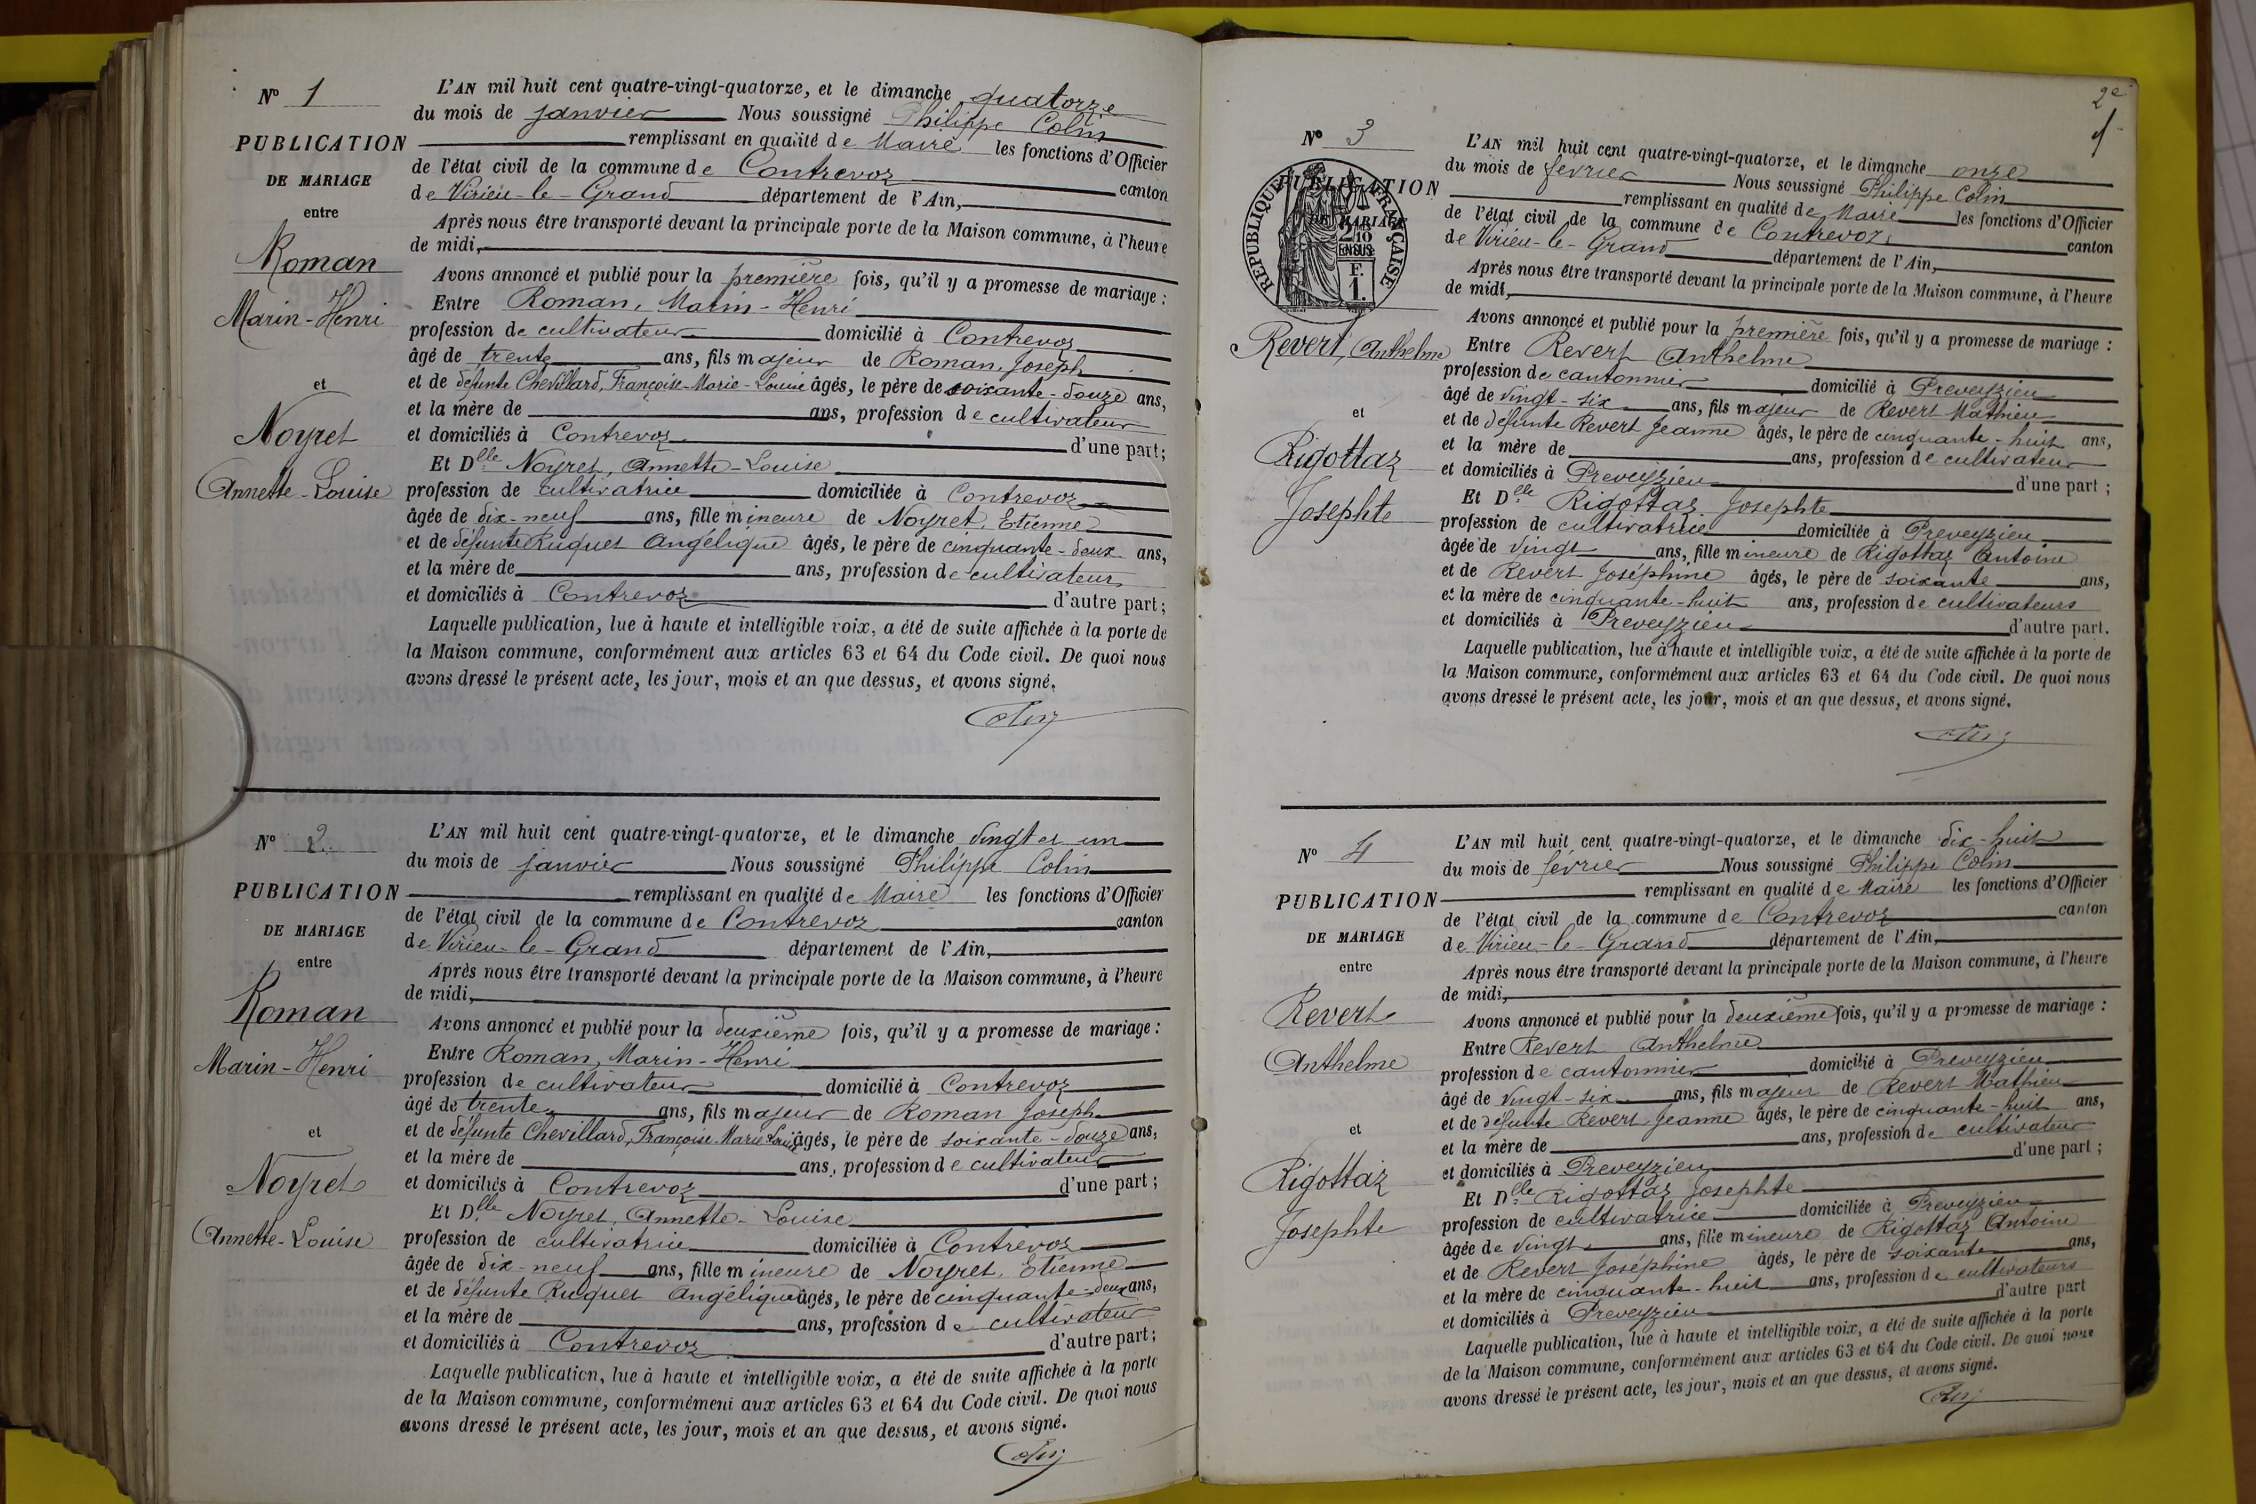 N° 1
PUBLICATION
DE MARIAGE
entre
Roman
Marin-Henri
et
Noyret
Annette-Louise
L'AN mil huit cent quatre-vingt-quatorze, et le dimanche quatorze
du mois de janvier Nous soussigné Philippe Colin
remplissant en qualité de Maire les fonctions d'Officier
de l'état civil de la commune de Contrevoz canton
de Virieu-le-Grand département de l'Ain,
Après nous être transporté devant la principale porte de la Maison commune, à l'heure
de midi,
Avons annoncé et publié pour la première fois, qu'il y a promesse de mariage :
Entre Roman, Marin-Henri
profession de cultivateur domicilié à Contrevoz
âgé de trente ans, fils majeur de Roman, Joseph
et de défunte Chevillard, Françoise-Marie-Louise âgés, le père de soixante-douze ans,
et la mère de ans, profession de cultivateur
et domiciliés à Contrevoz d'une part;
Et Dlle Noyret, Annette-Louise
profession de cultivatrice domiciliée à Contrevoz
âgée de dix-neuf ans, fille mineure de Noyret, Etienne
et de défunte Ruquet Angélique âgés, le père de cinquante-deux ans,
et la mère de ans, profession de cultivateur
et domiciliés à Contrevoz d'autre part;
Laquelle publication, lue à haute et intelligible voix, a été de suite affichée à la porte de
la Maison commune, conformément aux articles 63 et 64 du Code civil. De quoi nous
avons dressé le présent acte, les jour, mois et an que dessus, et avons signé.
Colin
N° 2
PUBLICATION
DE MARIAGE
entre
Roman
Marin-Henri
et
Noyret
Annette-Louise
L'AN mil huit cent quatre-vingt-quatorze, et le dimanche vingt et un
du mois de janvier Nous soussigné Philippe Colin
remplissant en qualité de Maire les fonctions d'Officier
de l'état civil de la commune de Contrevoz canton
de Virieu-le-Grand département de l'Ain,
Après nous être transporté devant la principale porte de la Maison commune, à l'heure
de midi,
Avons annoncé et publié pour la deuxième fois, qu'il y a promesse de mariage :
Entre Roman, Marin-Henri
profession de cultivateur domicilié à Contrevoz
âgé de trente ans, fils majeur de Roman Joseph
et de défunte Chevillard, Françoise Marie Louise âgés, le père de soixante-douze ans,
et la mère de ans, profession de cultivateur
et domiciliés à Contrevoz d'une part;
Et Dlle Noyret, Annette-Louise
profession de cultivatrice domiciliée à Contrevoz
âgée de dix-neuf ans, fille mineure de Noyret, Etienne
et de défunte Ruquet Angélique âgés, le père de cinquante-deux ans,
et la mère de ans, profession de cultivateur
et domiciliés à Contrevoz d'autre part;
Laquelle publication, lue à haute et intelligible voix, a été de suite affichée à la porte
de la Maison commune, conformément aux articles 63 et 64 du Code civil. De quoi nous
avons dressé le présent acte, les jour, mois et an que dessus, et avons signé.
Colin
2e
N° 3
PUBLICATION
DE MARIAGE
REPUBLIQUE FRANÇAISE
2/10 EN SUS
F. 1.
Revert, Anthelme
et
Rigottaz
Josephte
L'AN mil huit cent quatre-vingt-quatorze, et le dimanche onze
du mois de février Nous soussigné Philippe Colin
remplissant en qualité de Maire les fonctions d'Officier
de l'état civil de la commune de Contrevoz canton
de Virieu-le-Grand département de l'Ain,
Après nous être transporté devant la principale porte de la Maison commune, à l'heure
de midi,
Avons annoncé et publié pour la première fois, qu'il y a promesse de mariage :
Entre Revert Anthelme
profession de cantonnier domicilié à Preveyzieu
âgé de vingt-six ans, fils majeur de Revert Mathieu
et de défunte Revert Jeanne âgés, le père de cinquante-huit ans,
et la mère de ans, profession de cultivateur
et domiciliés à Preveyzieu d'une part ;
Et Dlle Rigottaz Josephte
profession de cultivatrice domiciliée à Preveyzieu
âgée de vingt ans, fille mineure de Rigottaz Antoine
et de Revert Joséphine âgés, le père de soixante ans,
et la mère de cinquante-huit ans, profession de cultivateurs
et domiciliés à Preveyzieu d'autre part.
Laquelle publication, lue à haute et intelligible voix, a été de suite affichée à la porte de
la Maison commune, conformément aux articles 63 et 64 du Code civil. De quoi nous
avons dressé le présent acte, les jour, mois et an que dessus, et avons signé.
Colin
N° 4
PUBLICATION
DE MARIAGE
entre
Revert
Anthelme
et
Rigottaz
Josephte
L'AN mil huit cent quatre-vingt-quatorze, et le dimanche dix-huit
du mois de février Nous soussigné Philippe Colin
remplissant en qualité de Maire les fonctions d'Officier
de l'état civil de la commune de Contrevoz canton
de Virieu-le-Grand département de l'Ain,
Après nous être transporté devant la principale porte de la Maison commune, à l'heure
de midi,
Avons annoncé et publié pour la deuxième fois, qu'il y a promesse de mariage :
Entre Revert Anthelme
profession de cantonnier domicilié à Preveyzieu
âgé de vingt-six ans, fils majeur de Revert Mathieu
et de défunte Revert Jeanne âgés, le père de cinquante-huit ans,
et la mère de ans, profession de cultivateur
et domiciliés à Preveyzieu d'une part ;
Et Dlle Rigottaz Josephte
profession de cultivatrice domiciliée à Preveyzieu
âgée de vingt ans, fille mineure de Rigottaz Antoine
et de Revert Joséphine âgés, le père de soixante ans,
et la mère de cinquante-huit ans, profession de cultivateurs
et domiciliés à Preveyzieu d'autre part
Laquelle publication, lue à haute et intelligible voix, a été de suite affichée à la porte
de la Maison commune, conformément aux articles 63 et 64 du Code civil. De quoi nous
avons dressé le présent acte, les jour, mois et an que dessus, et avons signé.
Colin